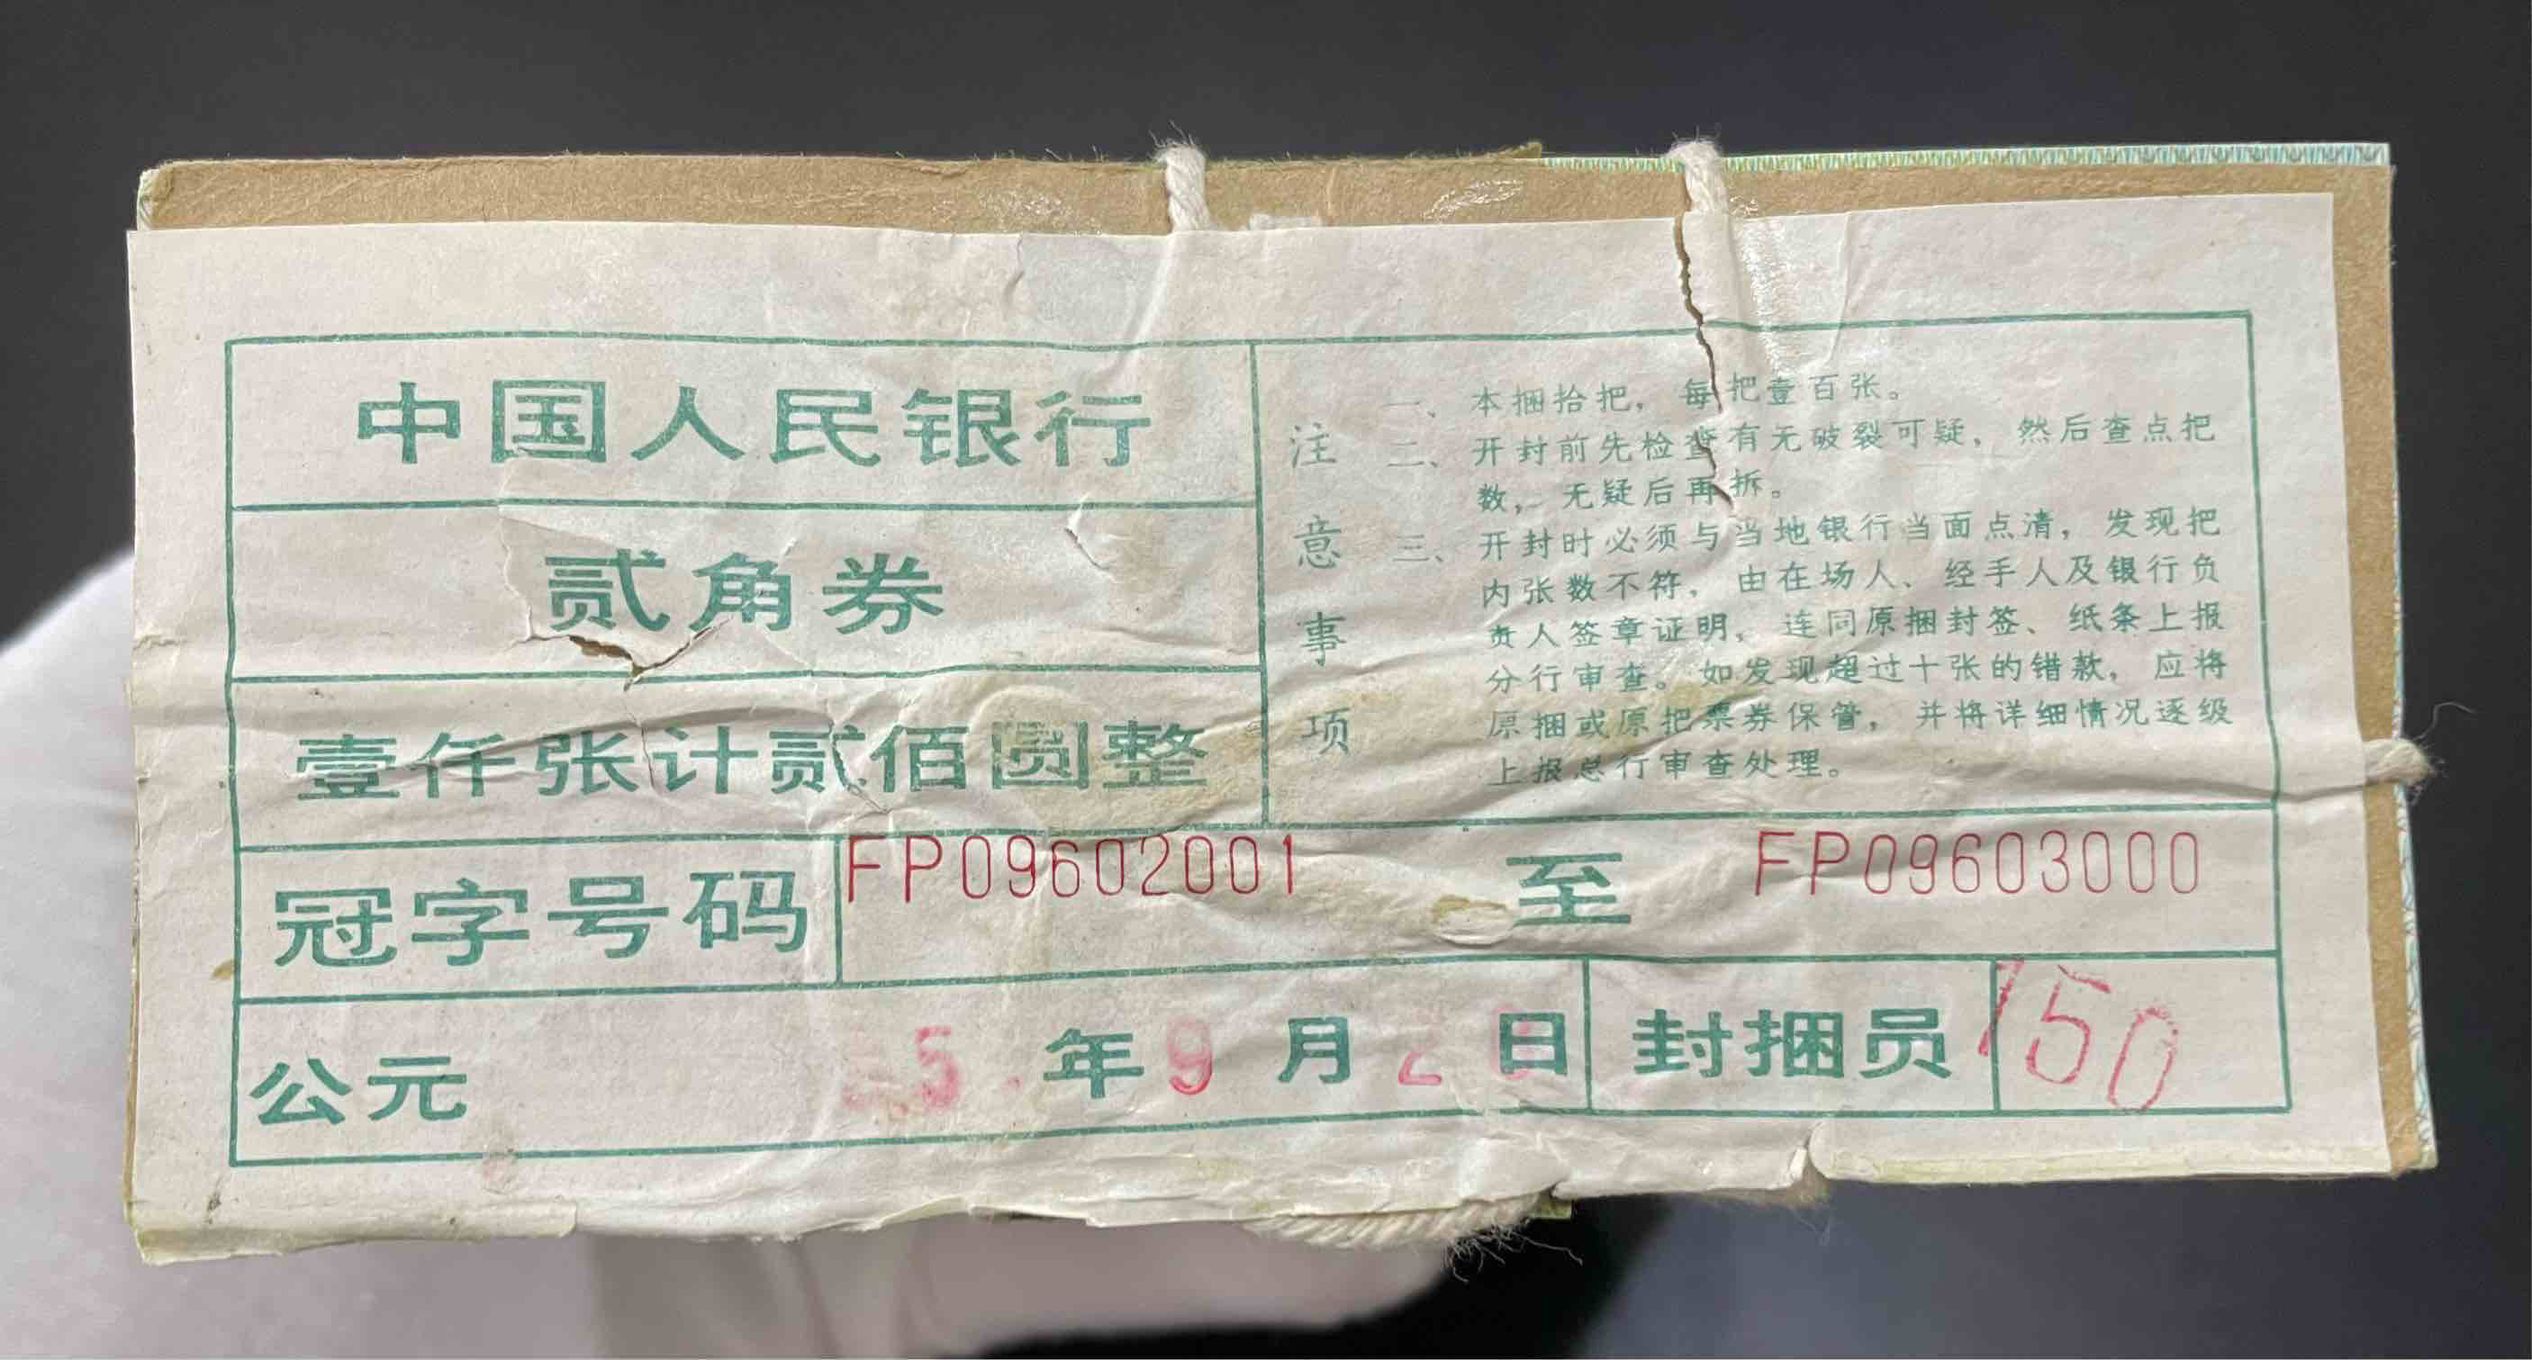 中国人民银行
贰角券
壹仟张计贰佰圆整
注意事项
一、本捆拾把，每把壹百张。
二、开封前先检查有无破裂可疑，然后查点把
数，无疑后再拆。
三、开封时必须与当地银行当面点清，发现把
内张数不符，由在场人、经手人及银行负
责人签章证明，连同原捆封签、纸条上报
分行审查。如发现超过十张的错款，应将
原捆或原把票券保管，并将详细情况逐级
上报总行审查处理。
冠字号码 FP09602001 至 FP09603000
公元 5 年 9 月 2 日 封捆员 150